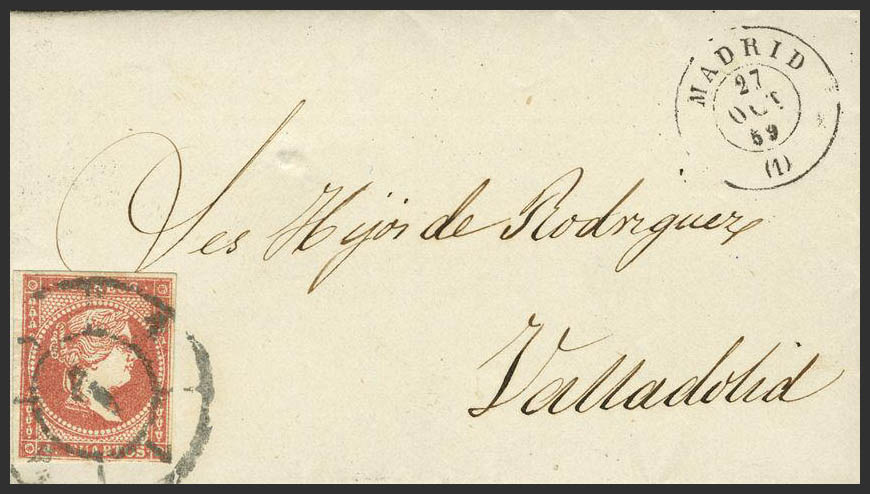 MADRID
27
OCT
59
(1)
Sres Hijos de Rodriguez
Valladolid
CUARTOS